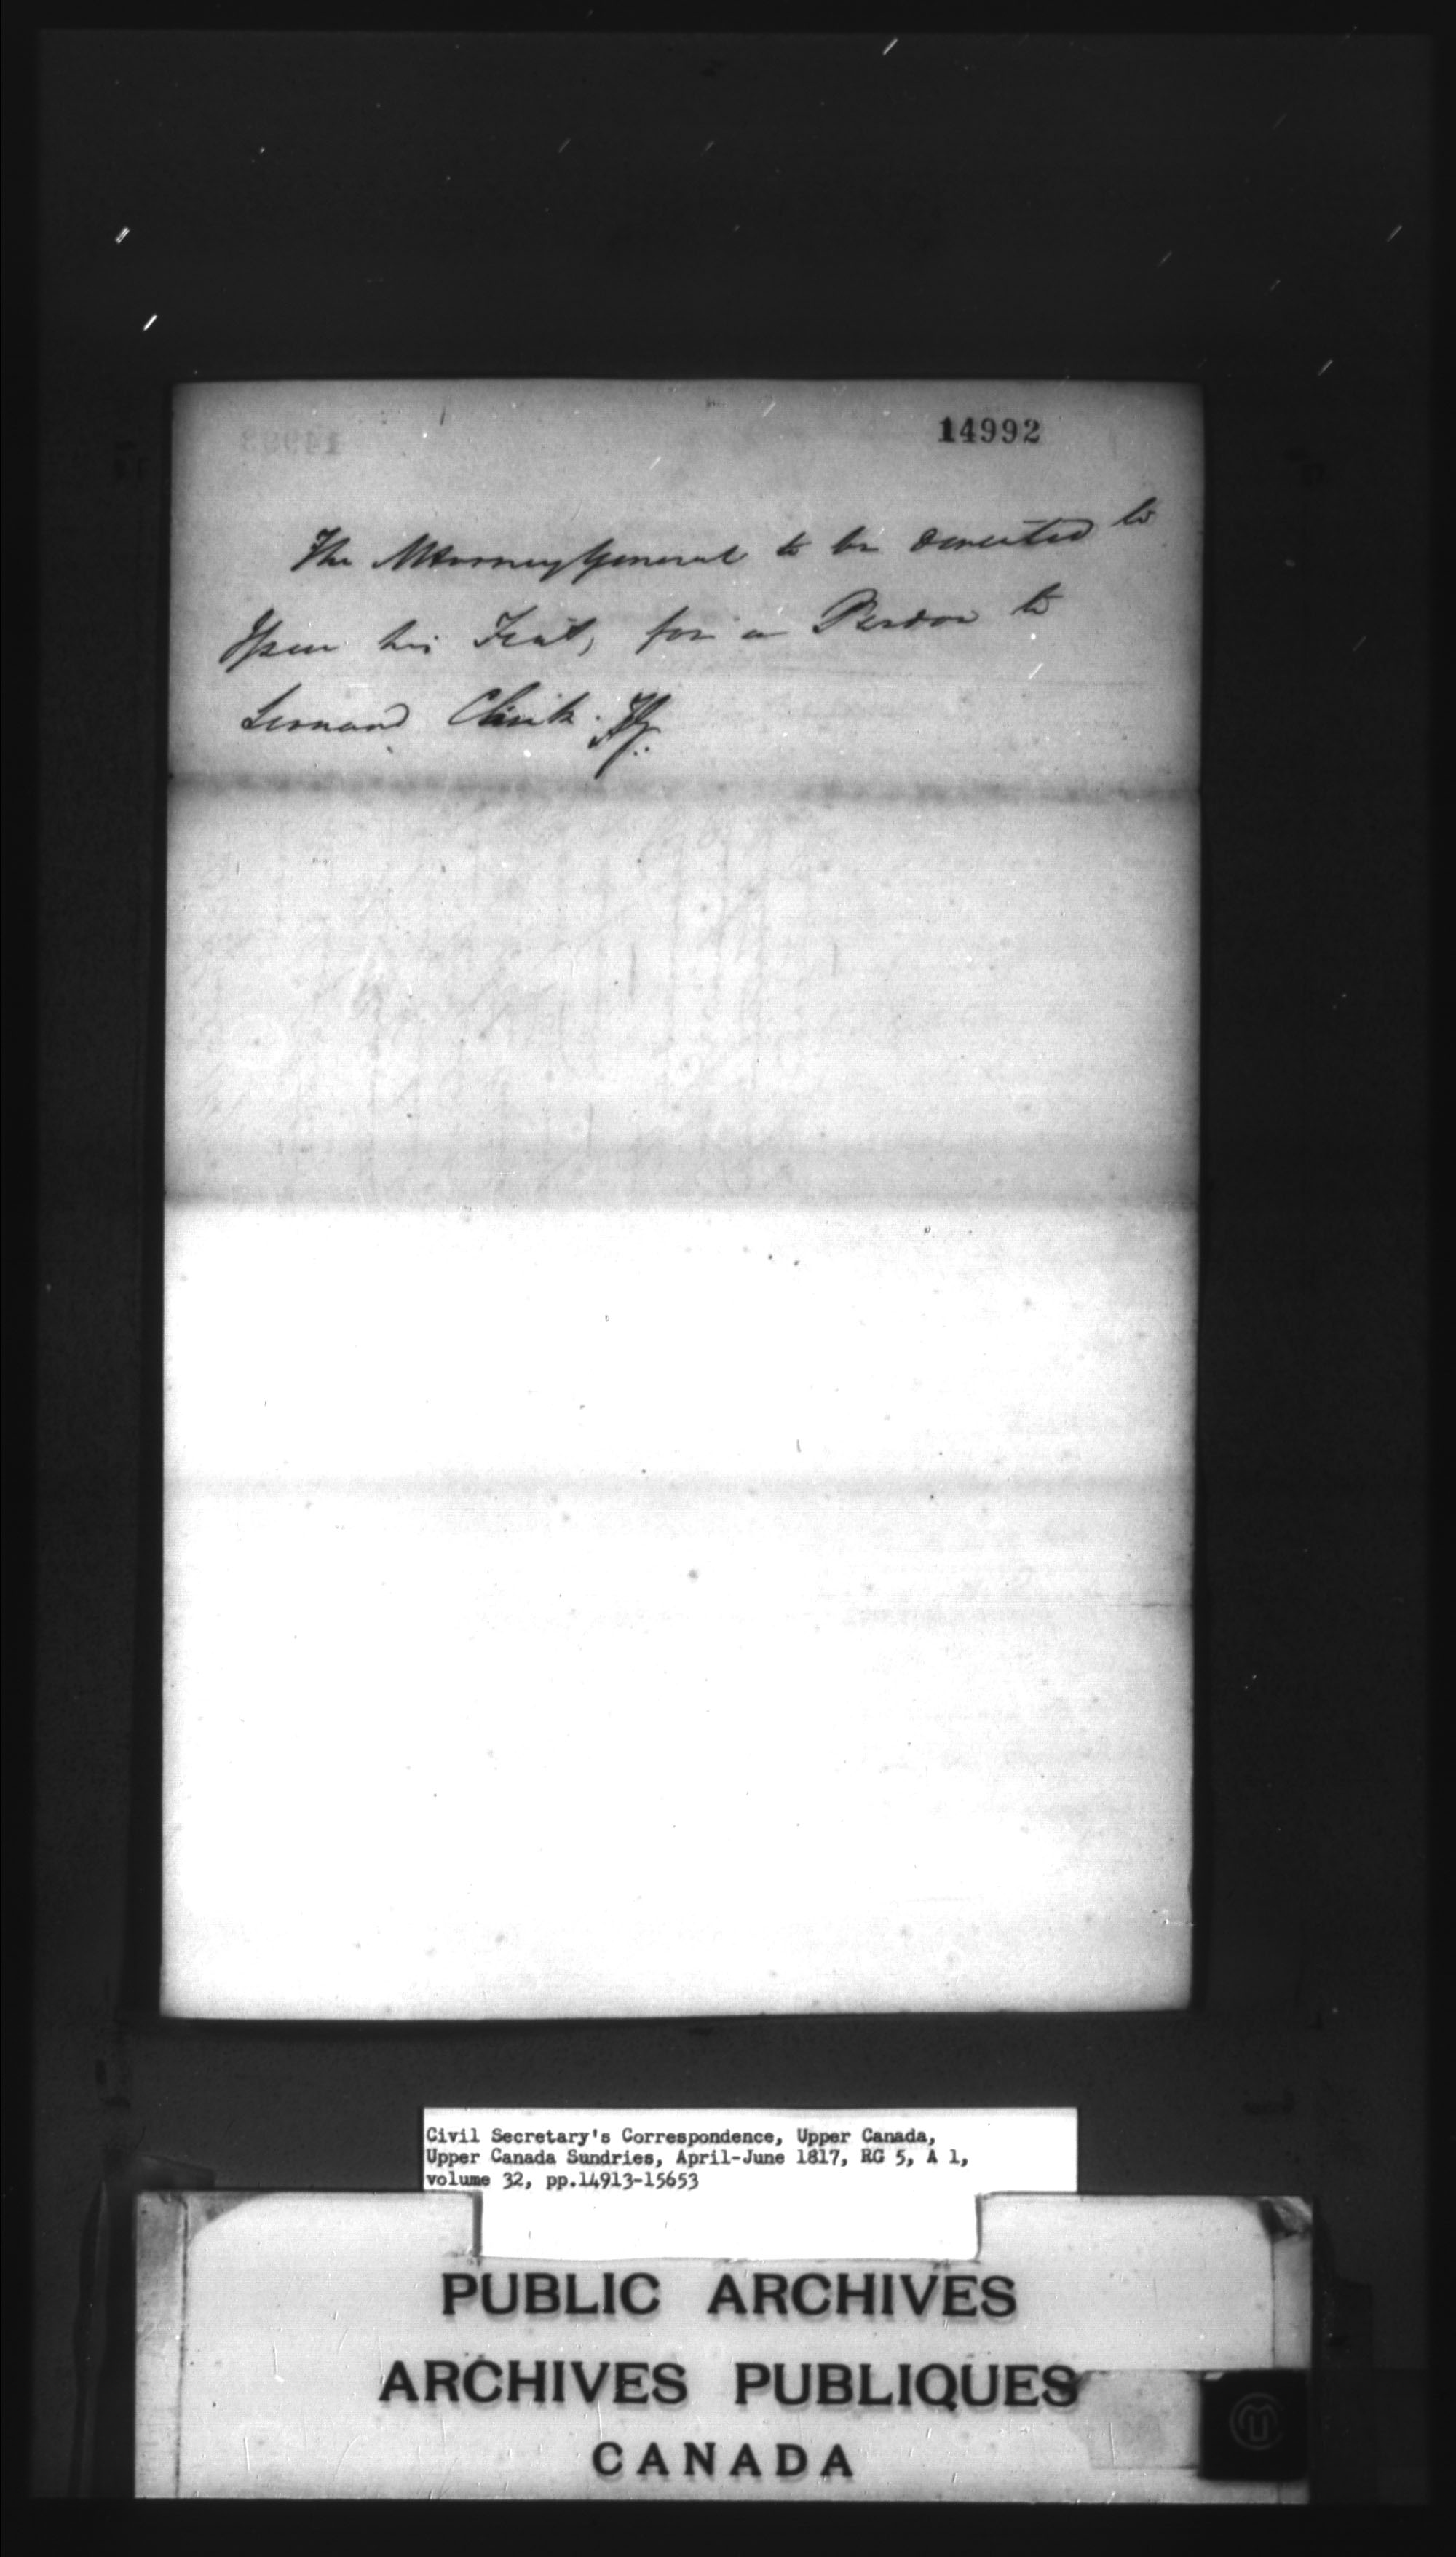 14992
The Attorney General to be directed to
Issue his Fiat, for a Pardon to
Leonard Clink.
Civil Secretary's Correspondence, Upper Canada,
Upper Canada Sundries, April-June 1817, RG 5, A 1,
volume 32, pp.14913-15653
PUBLIC ARCHIVES
ARCHIVES PUBLIQUES
CANADA